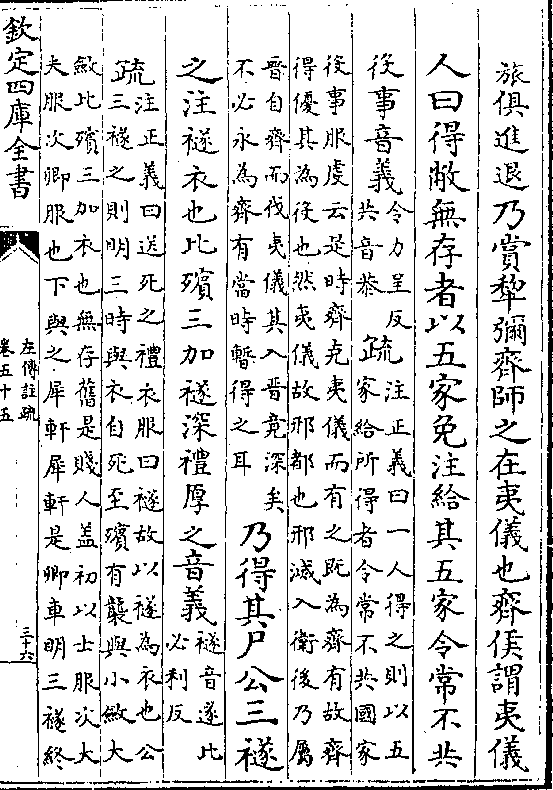 旅俱進退乃賞犂彌齊師之在夷儀也齊侯謂夷儀
人曰得敝無存者以五家免注給其五家令常不共
役事音義
令力呈反
共音恭
疏
注正義曰一人得之則以五
家給所得者令常不共國家
役事服虔云是時齊克夷儀而有之既為齊有故齊
得優其為役也然夷儀故邢都也邢滅入衛後乃屬
晉自齊而伐夷儀其入晉竟深矣
不必永為齊有當時暫得之耳
乃得其尸公三襚
之注襚衣也比殯三加襚深禮厚之音義
襚音遂比
必利反
疏
注正義曰送死之禮衣服曰襚故以襚為衣也公
三襚之則明三時與衣自死至殯有襲與小斂大
斂比殯三加衣也無存舊是賤人盖初以士服次大
夫服次卿服也下與之犀軒犀軒是卿車明三襚終
欽定四庫全書
左傳註疏
卷五十五
三十六